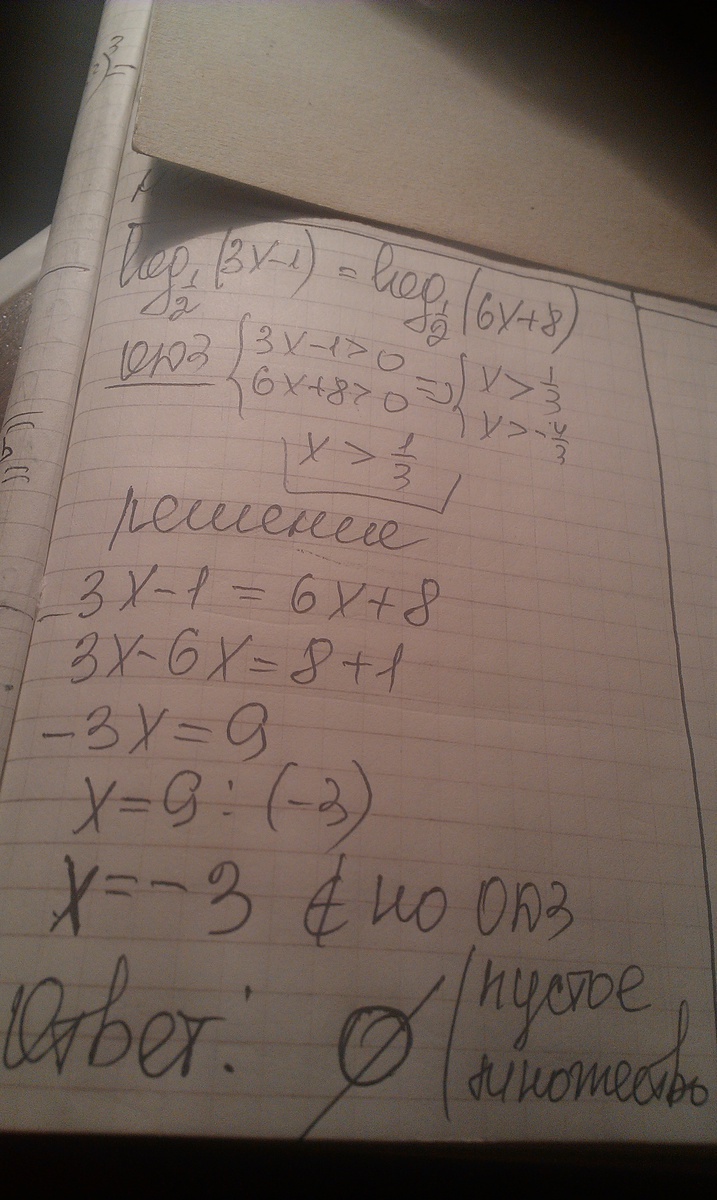 log_{1/2}(3x-1) = log_{1/2}(6x+8)
ОДЗ { 3x-1>0 6x+8>0 => { x > 1/3 x > -4/3
x > 1/3
решение
3x-1 = 6x+8
3x-6x=8+1
-3x=9
x=9:(-3)
x=-3 ∉ но ОДЗ
Ответ: ∅ / пустое
множество